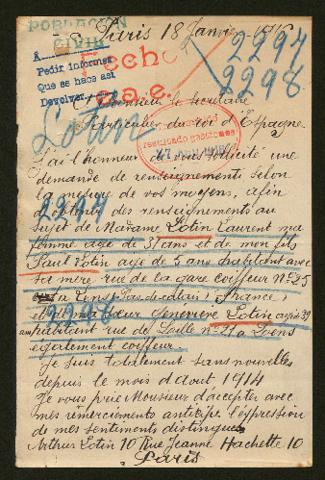 POBLACION
CIVIL
Paris 18 Janvier 1916
A
Pedir informes
Que se hace asi
Devolver
Echo
c.a.e.
2297
2298
Monsieur le Secrétaire
Particulier du roi d'Espagne
Lotin
J'ai l'honneur de vous sollicité une
demande de renseignements selon
la mesure de vos moyens, afin
d'obtenir des renseignements au
2297
sujet de Madame Lotin Laurent ma
femme agé de 31 ans et de mon fils
Paul Lotin age de 5 ans habitant avec
sa mère rue de la gare coiffeur Nº 25
a Lens Pas-de-calais, France,
2298
et ma sœur Geneviève Lotin agés 39
ans habitant rue de Lille nº 21 a Lens
egalement coiffeur.
Je suis totalement sans nouvelles
depuis le mois d'aout 1914
Je vous prie Monsieur d'accepter avec
mes remerciements anticipé l'expression
de mes sentiments distingués
Arthur Lotin 10 Rue Jeanne Hachette 10
Paris